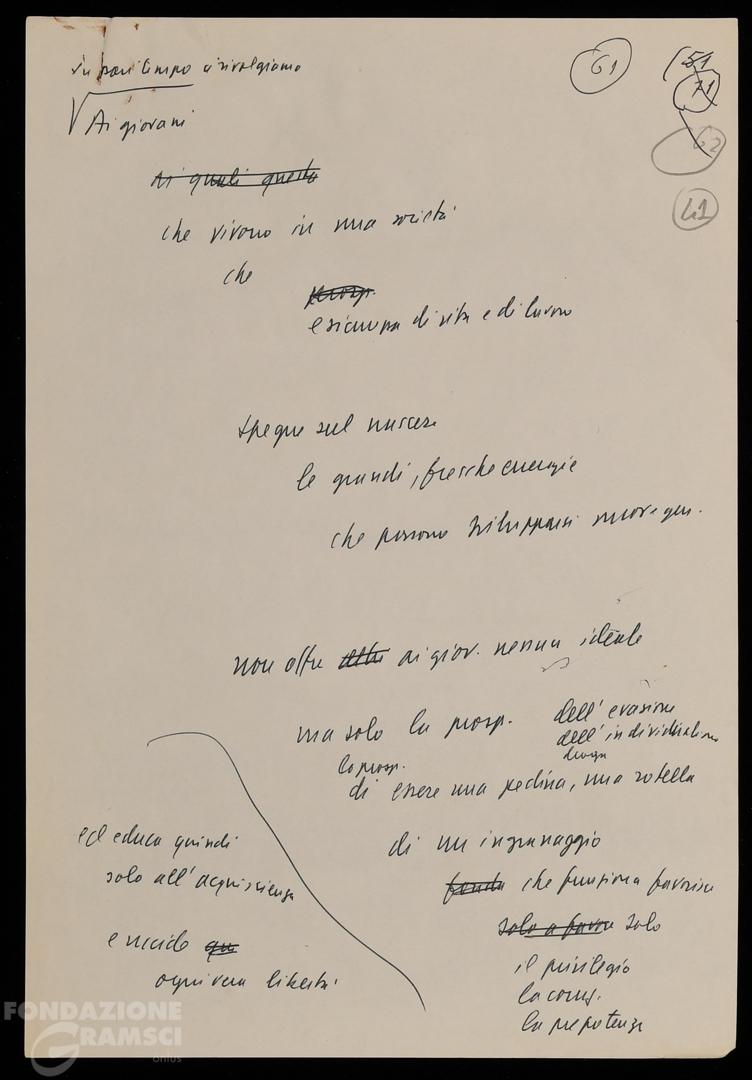 In pari tempo ci rivolgiamo
61
51
71
62
41
Ai giovani
ai quali questa
che vivono in una società
che
prosp.
e sicurezza di vita e di lavoro
spegne sul nascere
le grandi, fresche energie
che possono svilupparsi nuove gen.
non offre altro ai giov. nessun ideale
ma solo la prosp.
dell'evasione
dell'individualismo
droga
la prosp.
di essere una pedina, una rotella
di un ingranaggio
che funziona favorisce
solo a favore solo
il privilegio
la corruz.
la prepotenza
ed educa quindi
solo all'acquiescenza
e uccide
ogni vera libertà
FONDAZIONE
GRAMSCI
onlus